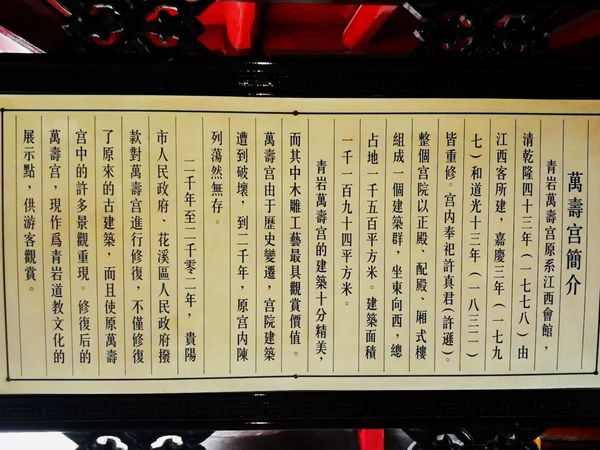 萬壽宮簡介
青岩萬壽宮原系江西會館，
清乾隆四十三年（一七七八）由
江西客所建，嘉慶三年（一七九
七）和道光十三年（一八三二）
皆重修。宮内奉祀許真君（許遜）。
整個宮院以正殿、配殿、厢式樓
組成一個建築群，坐東向西，總
占地一千五百平方米。建築面積
一千一百九十四平方米。
青岩萬壽宮的建築十分精美，
而其中木雕工藝最具觀賞價值。
萬壽宮由于歷史變遷，宮院建築
遭到破壞，到二千年，原宮内陳
列蕩然無存。
二千年至二千零二年，貴陽
市人民政府、花溪區人民政府撥
款對萬壽宮進行修復，不僅修復
了原來的古建築，而且使原萬壽
宮中的許多景觀重現。修復后的
萬壽宮，現作爲青岩道教文化的
展示點，供游客觀賞。